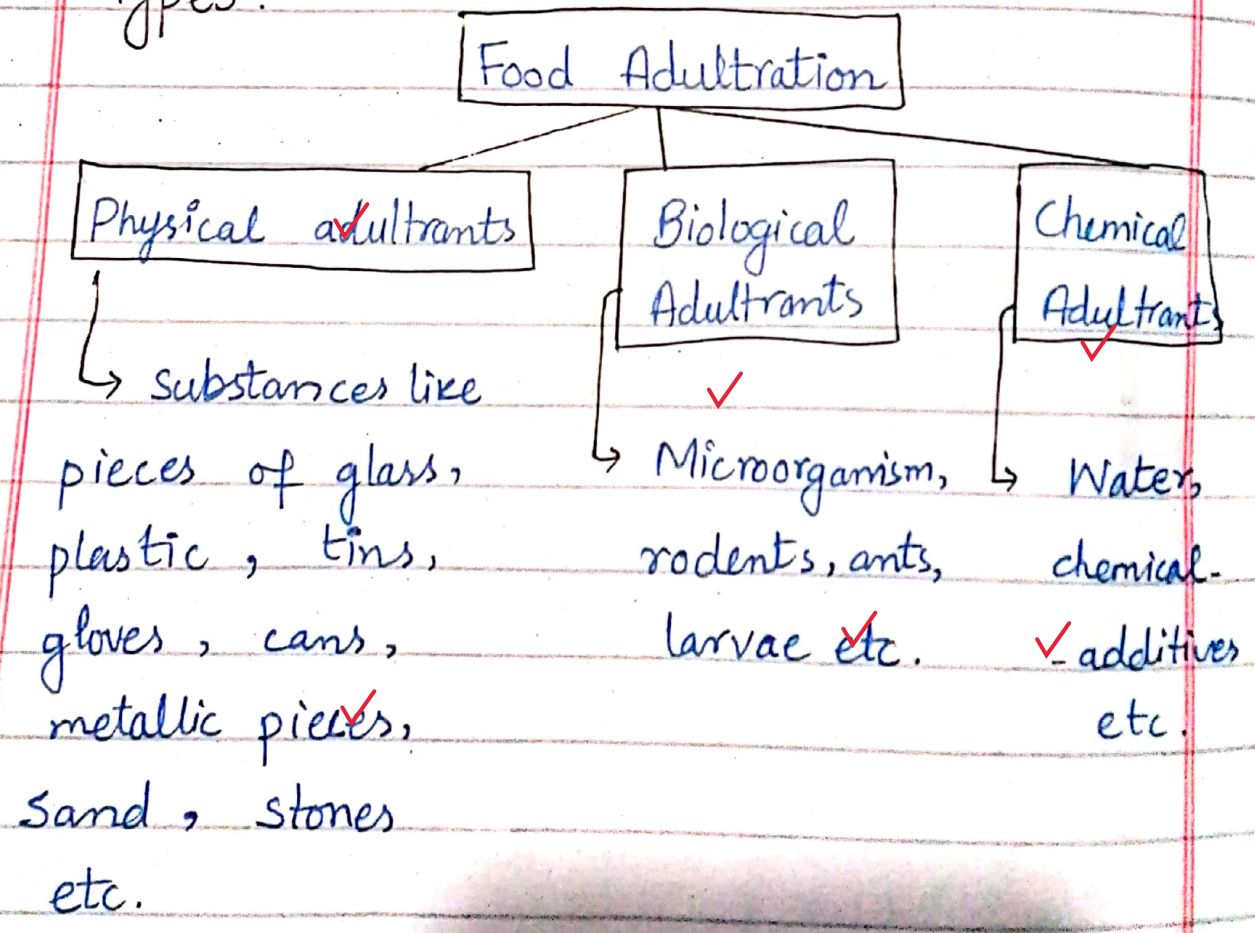 Types :
Food Adultration
Physical adultrants
substances like
pieces of glass,
plastic , tins,
gloves , cans,
metallic pieces,
sand , stones
etc.
Biological
Adultrants
Microorganism,
rodents, ants,
larvae etc.
Chemical
Adultrants
Water,
chemical-
- additives
etc.